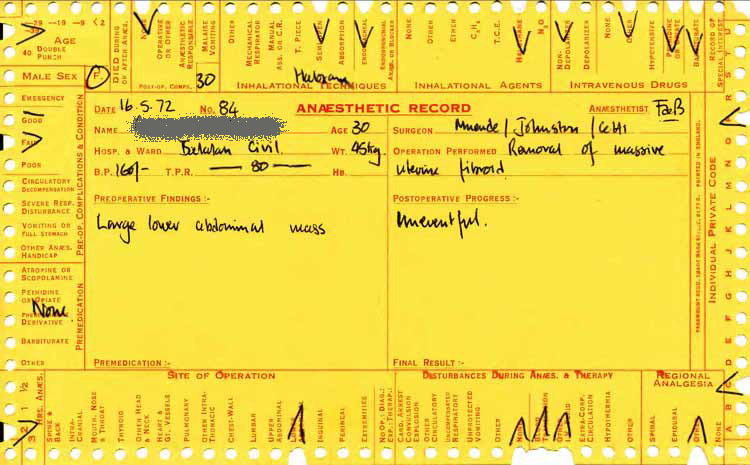 -79 -19 -9 <2
-39
AGE
40 DOUBLE PUNCH
MALE SEX F.
DIED DURING OR AFTER ANÆS.
NONE
OPERATIVE OR OTHER
ANÆSTHETIC RESPONSIBLE
MALAISE VOMITING
OTHER
POST-OP. COMPS.
30
MECHANICAL RESPIRATOR
MANUAL ASS. OR C.R.
T. PIECE
ABSORPTION
ENDOTRACHEAL
INHALATIONAL TECHNIQUES
NONE
OTHER
ETHER
C₃H₆
T.C.E.
HALOTHANE
N₂O
INHALATIONAL AGENTS
NON-DEPOLARIZER
DEPOLARIZER
NONE
OTHER
HYPOTENSIVE
PETHIDINE OR OPIATE
BARBITURATE
INTRAVENOUS DRUGS
RECORD OF SPECIAL INTEREST
EMERGENCY
GOOD
FAIR
POOR
CIRCULATORY DECOMPENSATION
SEVERE RESP. DISTURBANCE
VOMITING OR FULL STOMACH
OTHER ANÆS. HANDICAP
PRE-OP. COMPLICATIONS & CONDITION
ATROPINE OR SCOPOLAMINE
PETHIDINE OR OPIATE
None
DERIVATIVE
BARBITURATE
OTHER
PREMEDICATION
DATE 16.5.72 NO. 84 ANÆSTHETIC RECORD ANÆSTHETIST
NAME AGE 30 SURGEON Johnston
HOSP. & WARD Civil. WT. 45kg. OPERATION PERFORMED Removal of massive
B.P. 160/- T.P.R. — 80 — HB. uterine fibroid
PREOPERATIVE FINDINGS:- POSTOPERATIVE PROGRESS:-
Large lower abdominal mass Uneventful.
PREMEDICATION:- FINAL RESULT:-
PRINTED IN ENGLAND.
INDIVIDUAL PRIVATE CODE
HRS. ANÆS.
SITE OF OPERATION
SPINE & BACK
INTRA-CRANIAL
MOUTH, NOSE & THROAT
THYROID
OTHER HEAD & NECK
HEART & GT. VESSELS
PULMONARY
OTHER INTRA-THORACIC
CHEST-WALL
LUMBAR
UPPER ABDOMINAL
INGUINAL
PERINEAL
EXTREMITIES
DISTURBANCES DURING ANÆS. & THERAPY
NON. DIAG.: RESP.: THERAP.:
CARD. ARREST CONVULSION EXPLOSION
OTHER CIRCULATORY
UNCOMPENSATED RESPIRATORY
UNPROTECTED VOMITING
OTHER
NONE
EXTRA-CORP. CIRCULATION
HYPOTHERMIA
OTHER
REGIONAL ANALGESIA
SPINAL
EPIDURAL
OTHER
NONE